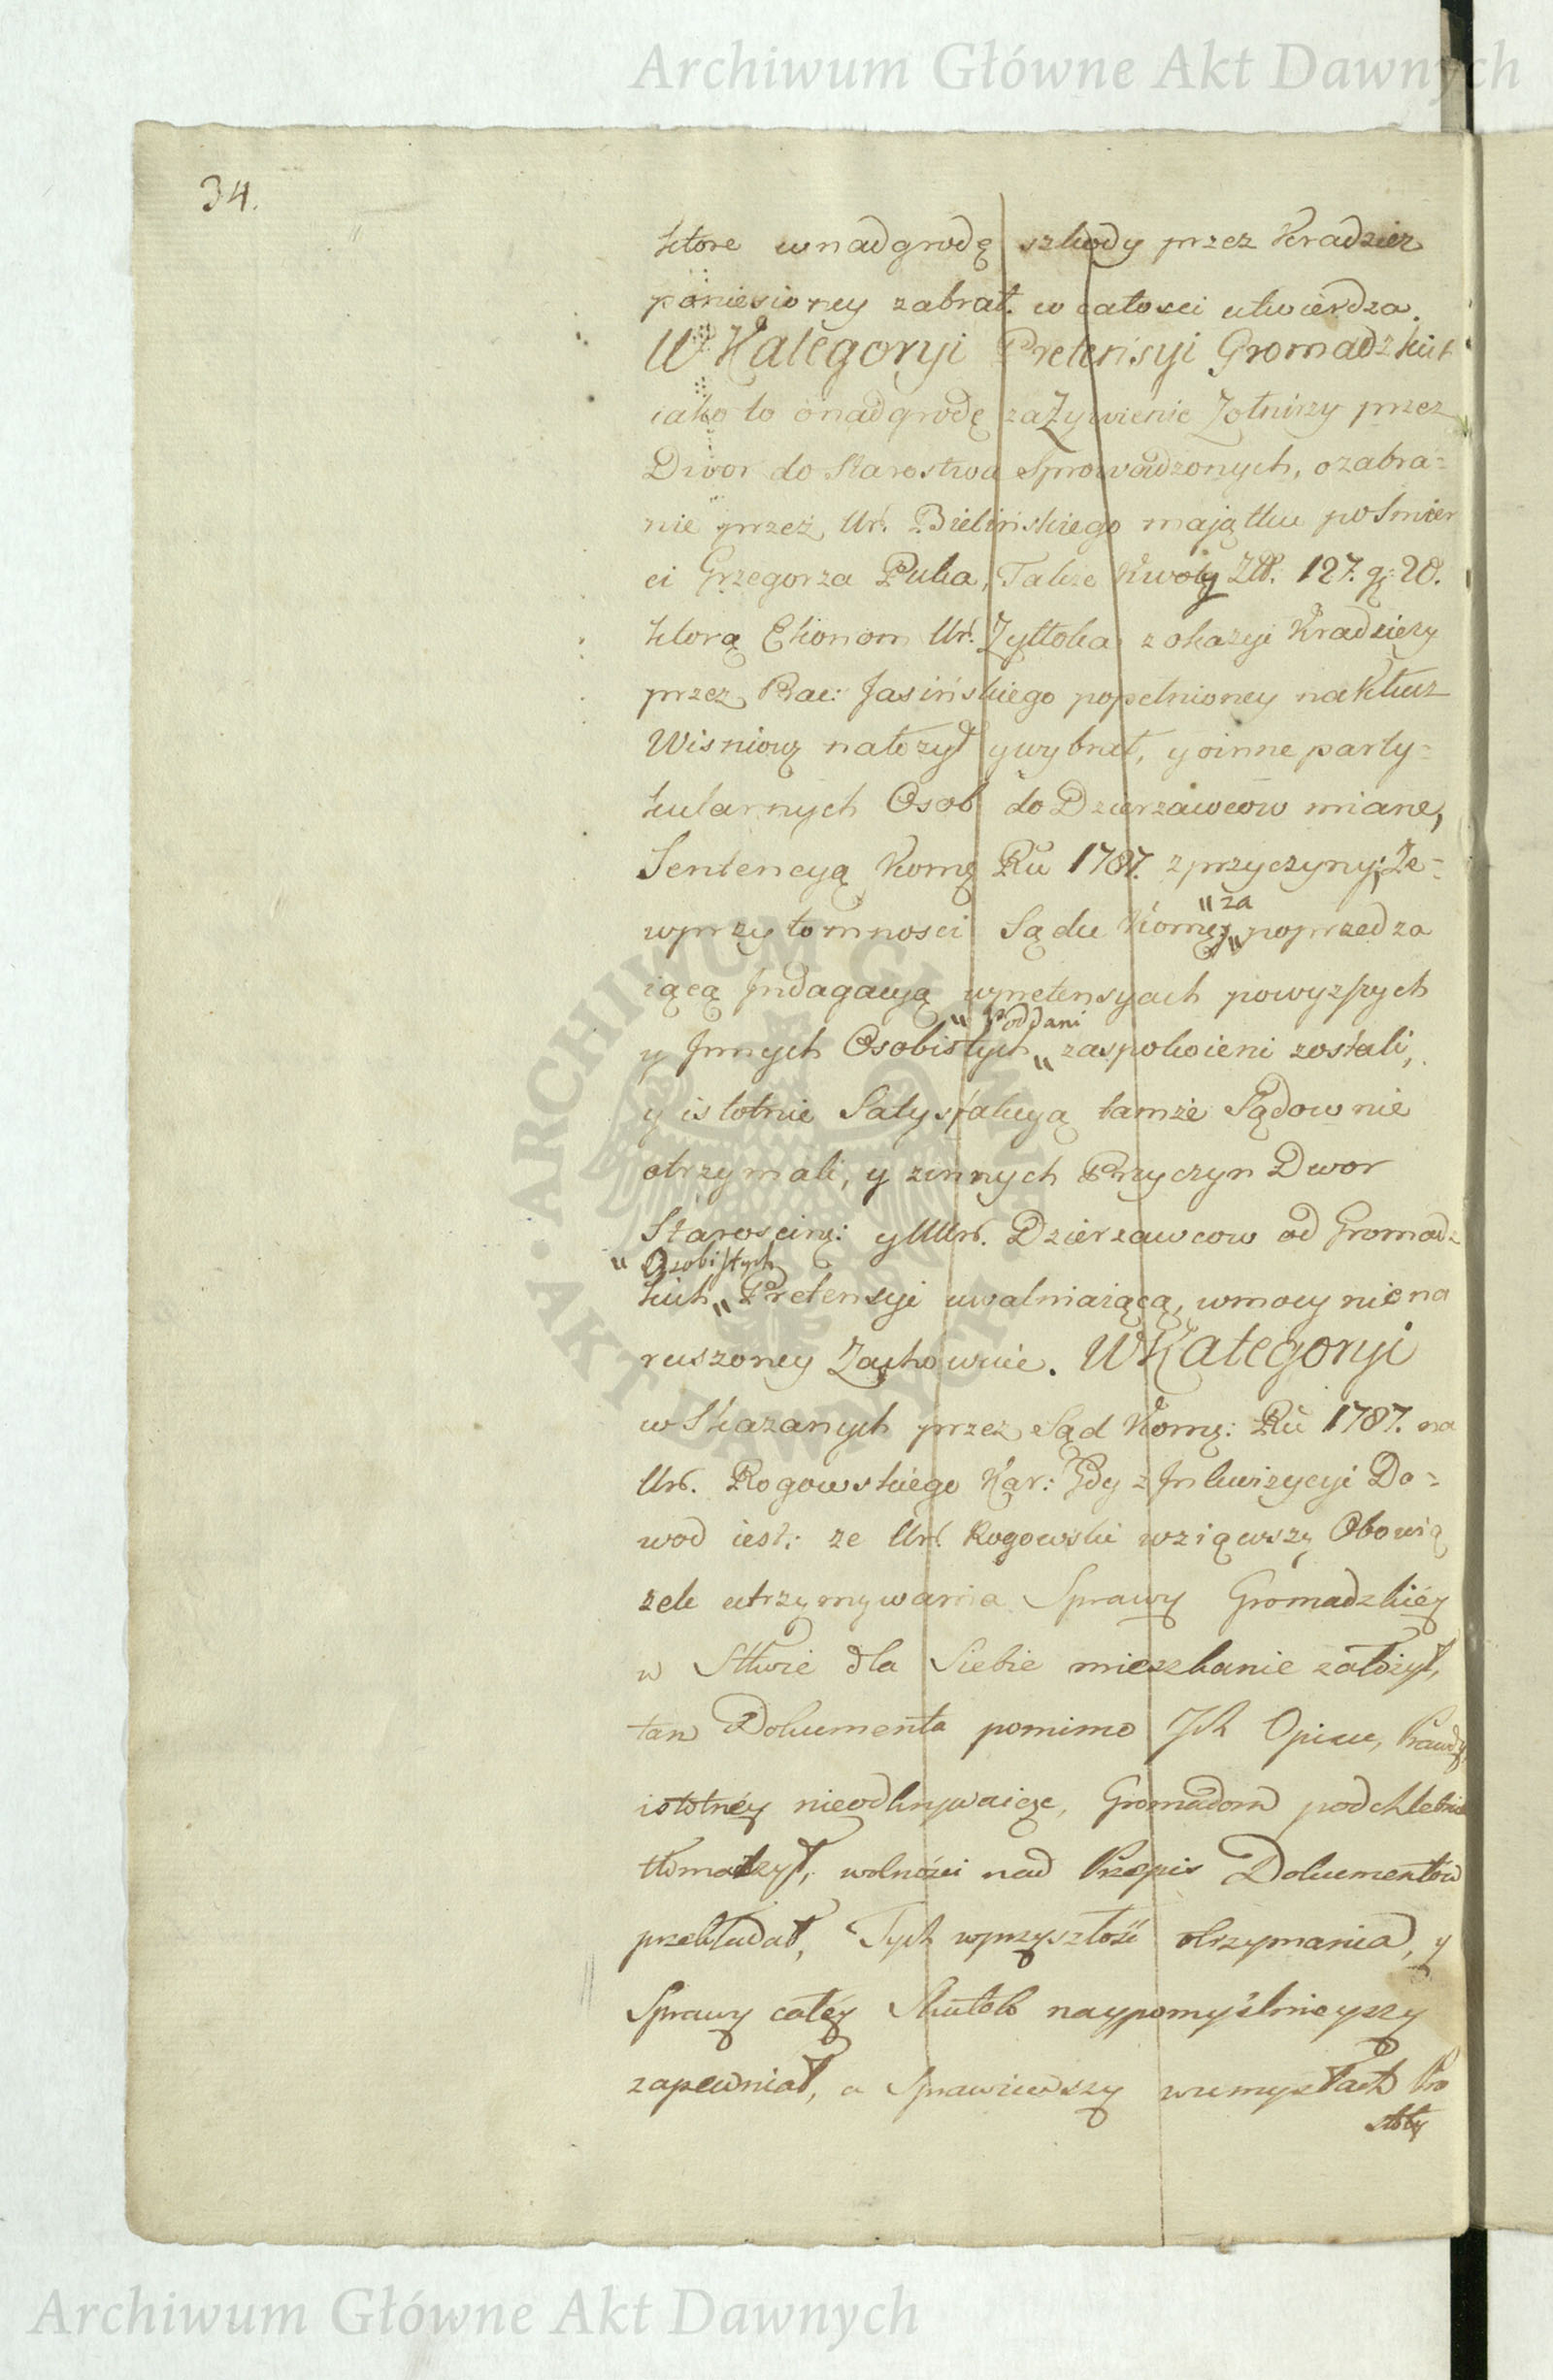 Archiwum Główne Akt Dawnych
34.
ktore w nadgrodę szkody przez Kradziez
poniesioney zabrał. w całosci utwierdza.
W Kategoryi Pretensyi Gromadzkich
iako to o nadgrodę za Zywienie Zołnirzy przez
Dwor do Starostwa Sprowadzonych, o zabra=
nie przez Ur. Bielińskiego maiątku po Smier
ci Grzegorza Puka, Takze Kwoty Złł. 127. g: 20.
ktorą Ekonom Ur. Zyttoka z okazyi Kradziezy
przez Prac: Jasińskiego popełnioney na Klucz
Wisniowy nałozył y wybrał, y o inne party=
kularnych Osob do Dzierzawcow miane,
Sentencyą Komę Ru 1787. z przyczyny; Ze=
w przytomnosci Sądu Komę: „za„ poprzedza
iącą Indagacyą w pretensyach powyzszych
y Innych Osobistych „Poddani„ zaspokoieni zostali,
y istotnie Satysfakcyą tamze Sądownie
otrzymali, y z innych Przyczyn Dwor
Starosciny: y UUr. Dzierzawcow od Gromadz
kich „Osobistych„ Pretensyi uwalniaiącą, w mocy nie na
ruszoney Zachowuie. W Kategoryi
wskazanych przez Sąd Komę: Ru 1787. na
Ur. Rogowskiego Kar: Gdy z Inkwizycyi Do=
wod iest: ze Ur. Rogowski wziąwszy Obowią
zek utrzymywania Sprawy Gromadzkiéy
w Sttwie dla Siebie mieszkanie założył,
tam Dokumenta pomimo Ich Opisu, Prawdy
istotnéy nieodkrywaiąc, Gromadom podchlebnie
tłomaczył, wolnosci nad Przepis Dokumentów
przekładał, Tych w przyszłość otrzymania, y
Sprawy całéy Skutek naypomyślnieyszy
zapewniał, a Sprawiwszy w umysłach Pro
stoty
ARCHIWUM GŁÓWNE AKT DAWNYCH
Archiwum Główne Akt Dawnych